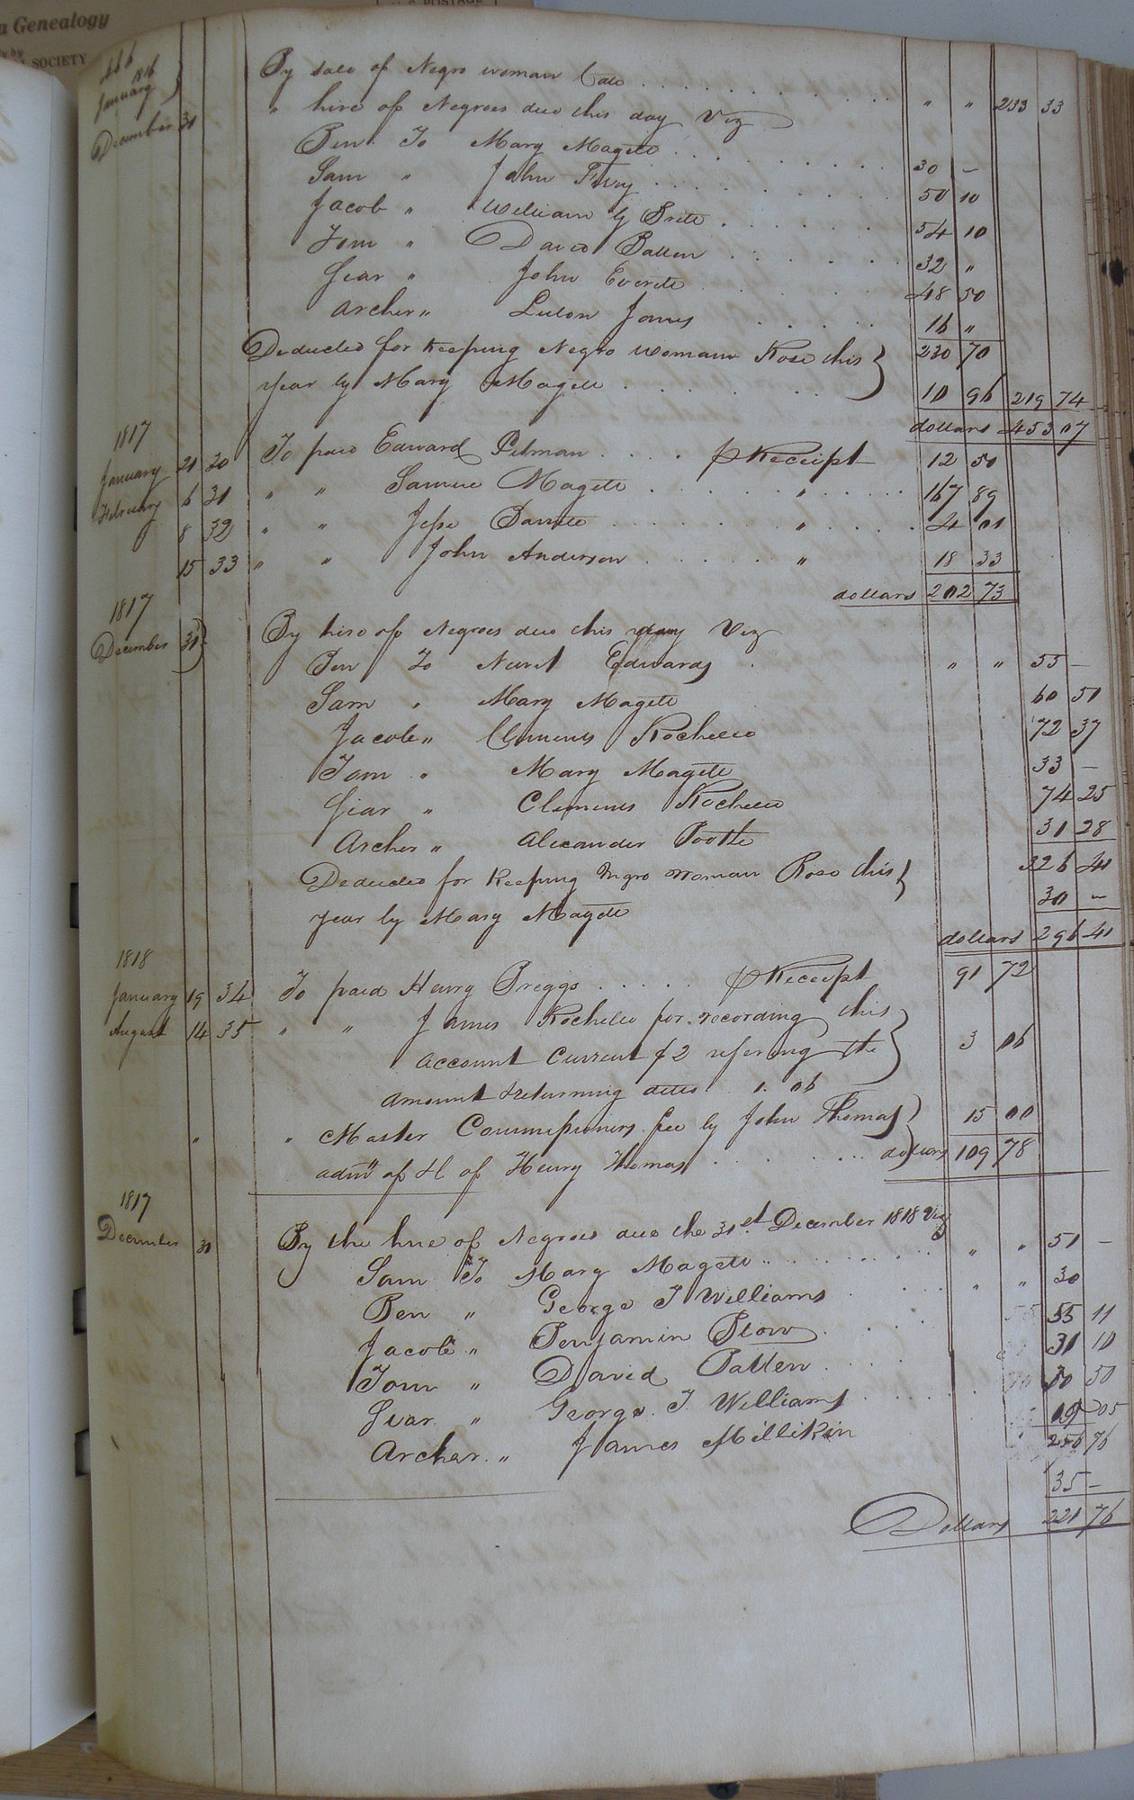 a Genealogy
SOCIETY
POSTAGE
January 1816
By sale of Negro woman . . . . . . . . . " " 233 33
December 31 " hire of Negroes due this day Viz
Ben To Mary Magett . . . . . . 30 –
Sam " John . . . . . . 50 10
Jacob " William G Britt . . . . . . 54 10
Tom " David Batten . . . . . . 32 "
Gear " John Everett . . . . . . 48 50
Archer " James . . . . . . 16 "
Deducted for Keeping Negro woman Rose this } 230 70
year by Mary Magett . . . . . . 10 96 219 74
dollars 453 07
1817
January 21 30 To paid Edward Pitman . . . . ⅌ Receipt 12 50
February 6 31 " " Samuel Magett . . . . . . " . . . . . 167 89
8 32 " " Jesse Barrett . . . . . . " . . . . 4 01
15 33 " " John Anderson . . . . . " 18 33
dollars 202 73
1817
December 31 } By hire of Negroes due this day Viz
Ben To Newit Edwards . " " 55 –
Sam " Mary Magett 60 51
Jacob " Clements Rochelle 72 37
Tom " Mary Magett 33 –
Gear " Clements Rochelle 74 25
Archer " Alexander Pootle 31 28
Deducted for Keeping Negro woman Rose this } 326 41
year by Mary Magett 30 –
dollars 296 41
1818
January 19 34 To paid Henry Briggs . . . . . ⅌ Receipt 91 72
August 14 35 " " James Rochelle for recording this }
account Current $2 refering the 3 06
amount & returning ditto 1. 06
" " Master Commissioners fee by John Thomas } 15 00
admr of H of Henry Thomas . . . . . . . dollars 109 78
1817
December 31 By the hire of Negroes due the 31st December 1818 Viz
Sam To Mary Magett . . . . . . . . " " 51 –
Ben " George T Williams . . " " 30
Jacob " Benjamin Blow . . . 55 11
Tom " David Batten . . . . 31 10
Gear " George T. Williams . . . . . . 50
Archer " James Millikin 05
256 76
35 –
Dollars 221 76